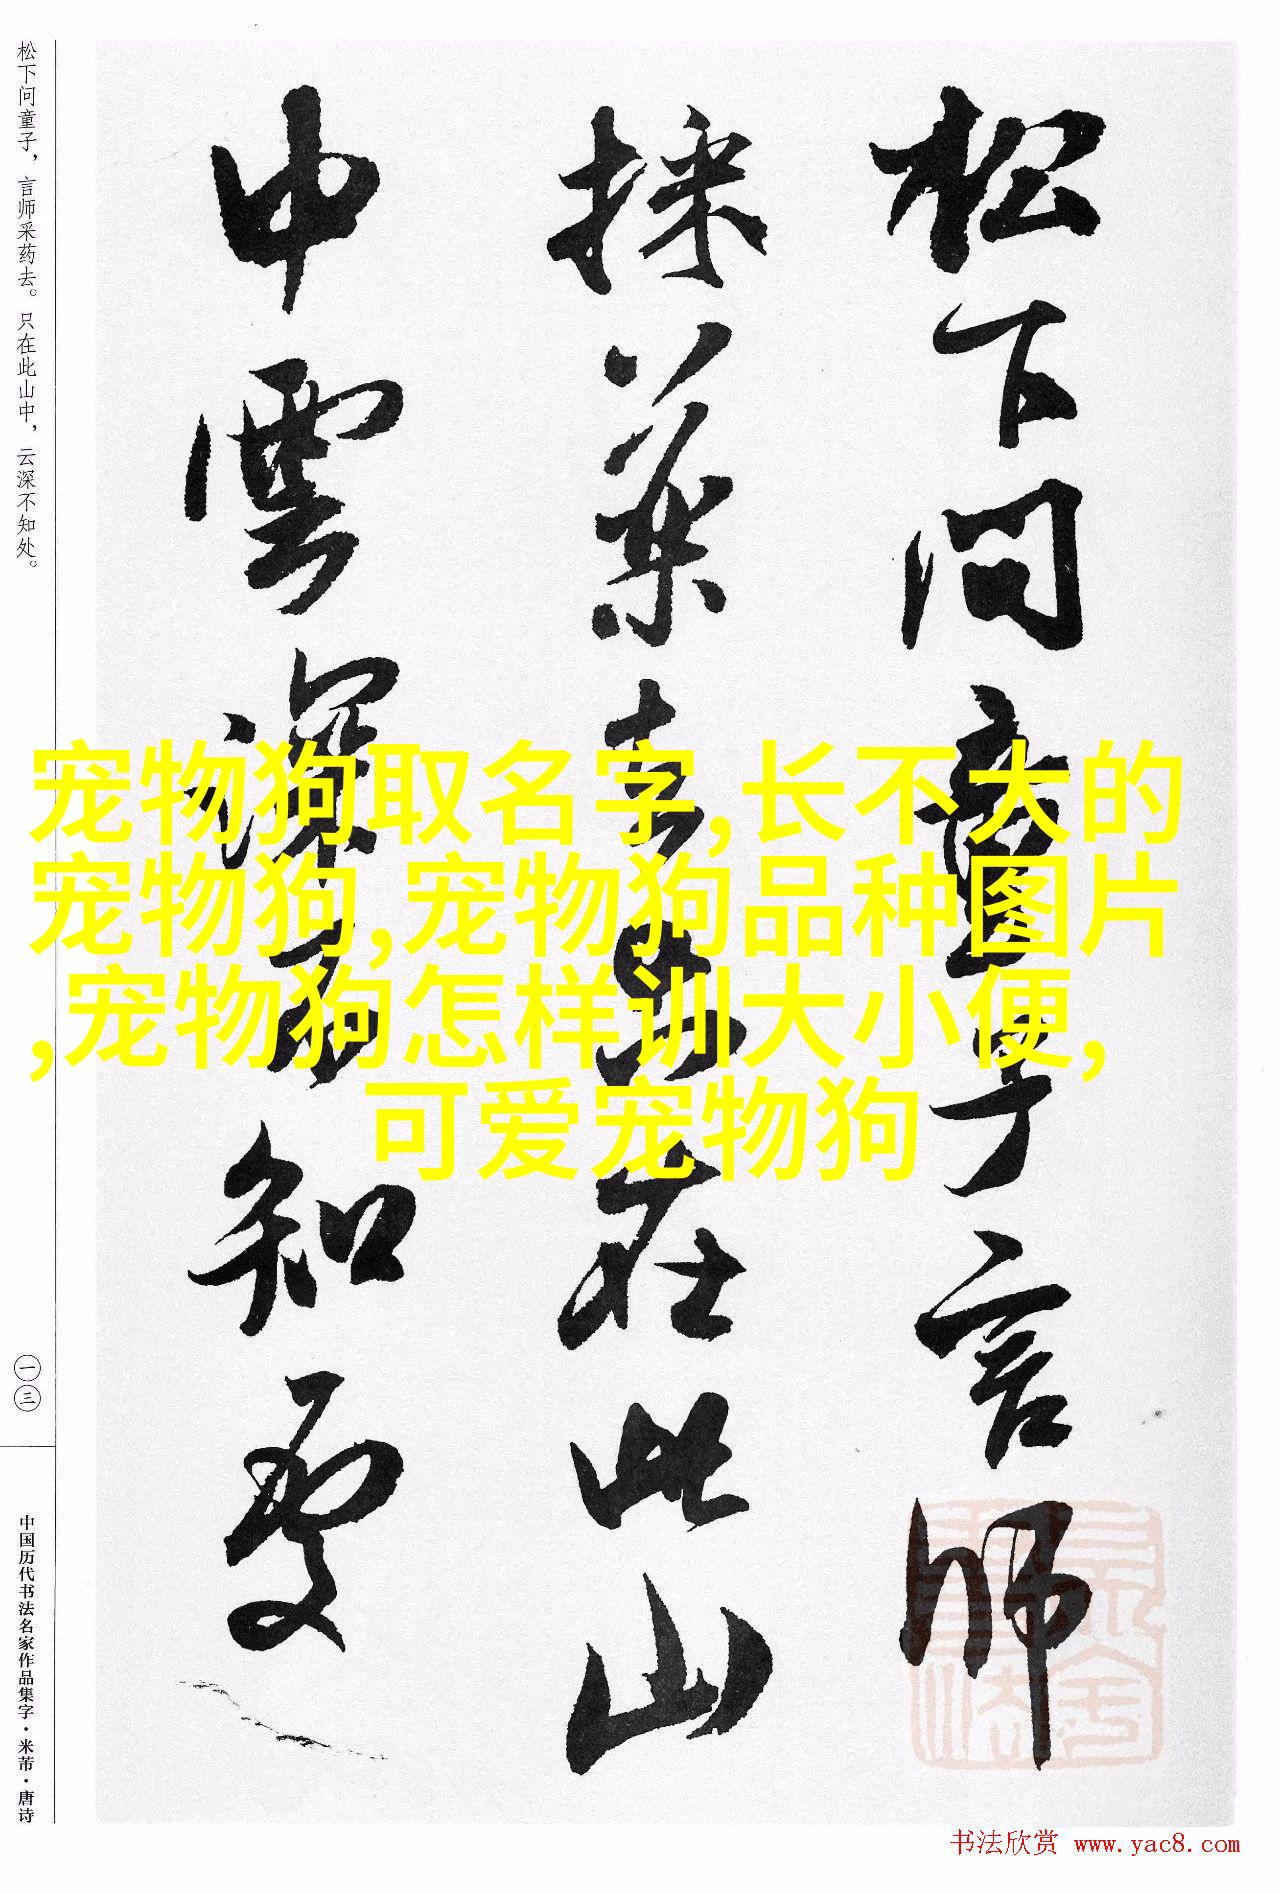 松下问童子，言师采药去。只在此山中，云深不知处。
一三
中国历代书法名家作品集字·米芾·唐诗
松下問童子言師
採藥去只在此山
中雲深不知處
宠物狗取名字,长不大的
宠物狗,宠物狗品种图片
,宠物狗怎样训大小便,
可爱宠物狗
书法欣赏 www.yac8.com